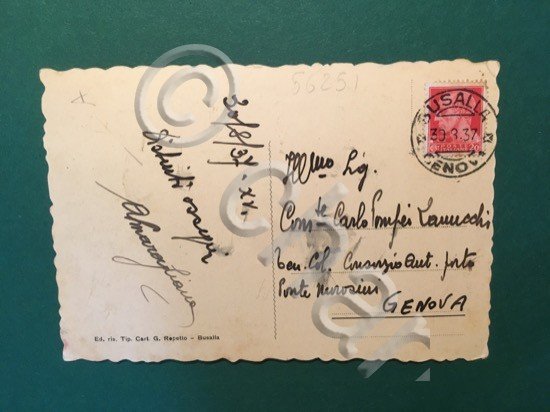 56251
30/8/37-XV.
Distinti ossequi
BUSALLA
30.8.37
GENOVA
Ill.mo Sig.
Com.te Carlo Pompei
Ten. Col. Consorzio Aut. porto
Ponte Morosini
GENOVA
Ed. ris. Tip. Cart. G. Repetto - Busalla